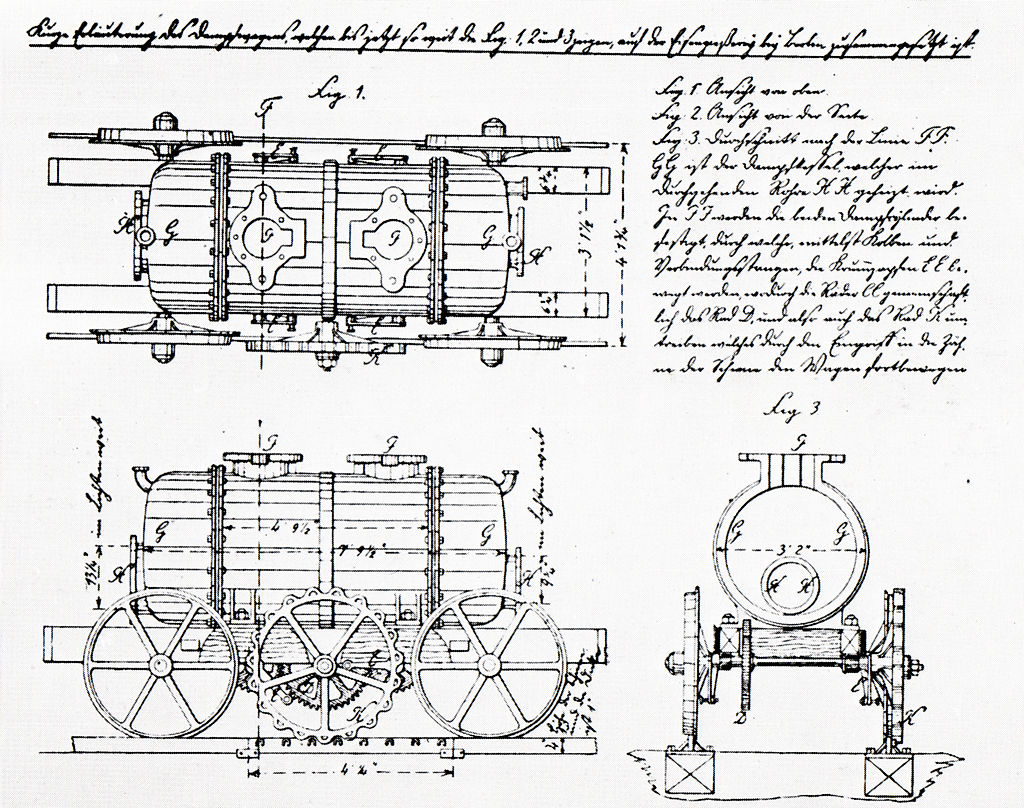 Kurze Erläuterung des Dampfwagens, welcher bis jetzt so weit die Fig. 1, 2 und 3 zeigen, auf der Eisengießerei bey Berlin zusammengesetzt ist.
Fig. 1.
F
Fig. 1 Ansicht von oben.
Fig. 2. Ansicht von der Seite
Fig. 3. Durchschnitt nach der Linie F F.
G G ist der Dampfkessel, welcher im
durchgehenden Rohre H H geheizt wird.
In J J werden die beiden Dampfzylinder be-
festigt, durch welche, mittelst Kolben und
Verbindungsstangen, die Krummzapfen E E be-
wegt werden, wodurch die Räder CC gemeinschaft-
lich das Rad D, und also auch das Rad K um-
treiben welches durch den Eingriff in die Zäh-
ne der Schiene den Wagen fortbewegen
H G G H
3' 1½"
K
Fig 3
4' 9½"
G G
H H
3' 2"
K
D
4"